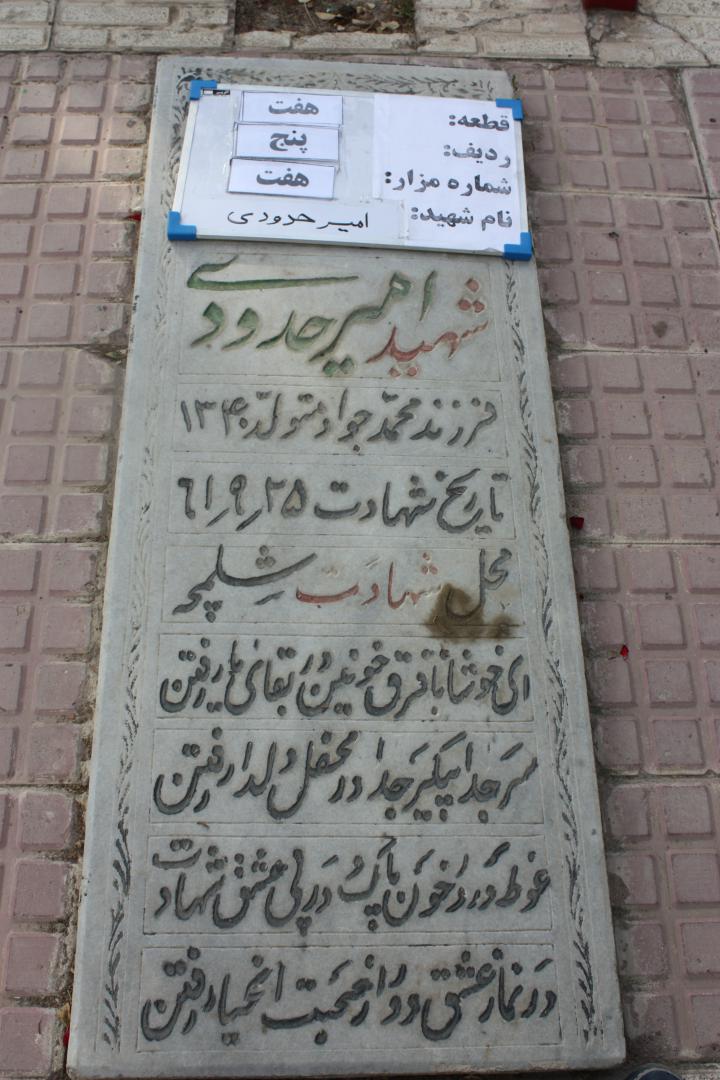 قطعه: هفت
ردیف: پنج
شماره مزار: هفت
نام شهید: امیر حدودی
شهید امیر حدودی
فرزند محمّد جواد متولّد ۱۳۴۰
تاریخ شهادت ۶۱٫۹٫۲۵
محل شهادت شلمچه
ای خوشا با فرق خونین در بقای یار رفتن
سر جدا پیکر جدا در محفل دلدار رفتن
غوطه ور در خون پاک در پی عشق شهادت
در نماز عشق دور از صحبت اغیار رفتن